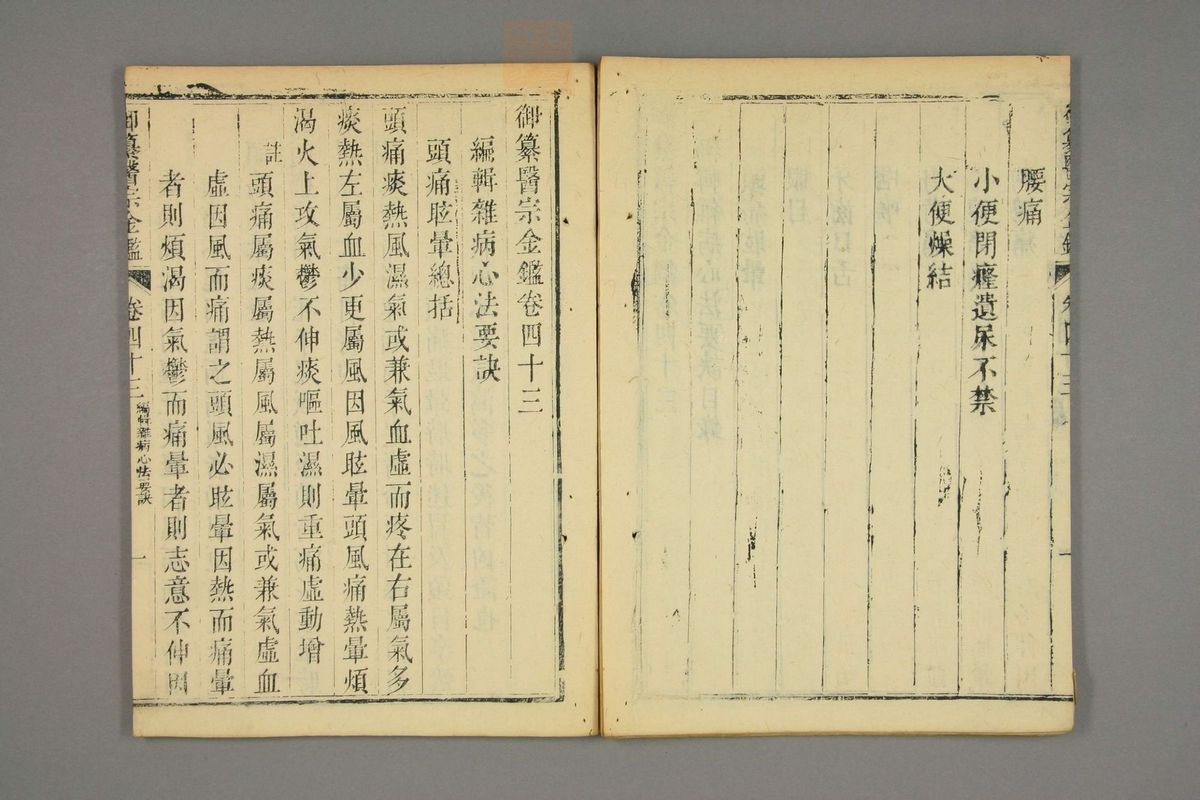 腰痛
小便閉癃遺尿不禁
大便燥結
御纂醫宗金鑑卷四十三
編輯雜病心法要訣
頭痛眩暈總括
頭痛痰熱風濕氣或兼氣血虛而疼在右屬氣多
痰熱左屬血少更屬風因風眩暈頭風痛熱暈煩
渴火上攻氣鬱不伸痰嘔吐濕則重痛虛動增
註頭痛屬痰屬熱屬風屬濕屬氣或兼氣虛血
虛因風而痛謂之頭風必眩暈因熱而痛暈
者則煩渴因氣鬱而痛暈者則志意不伸因
御纂醫宗金鑑 卷四十三 編輯雜病心法要訣 一